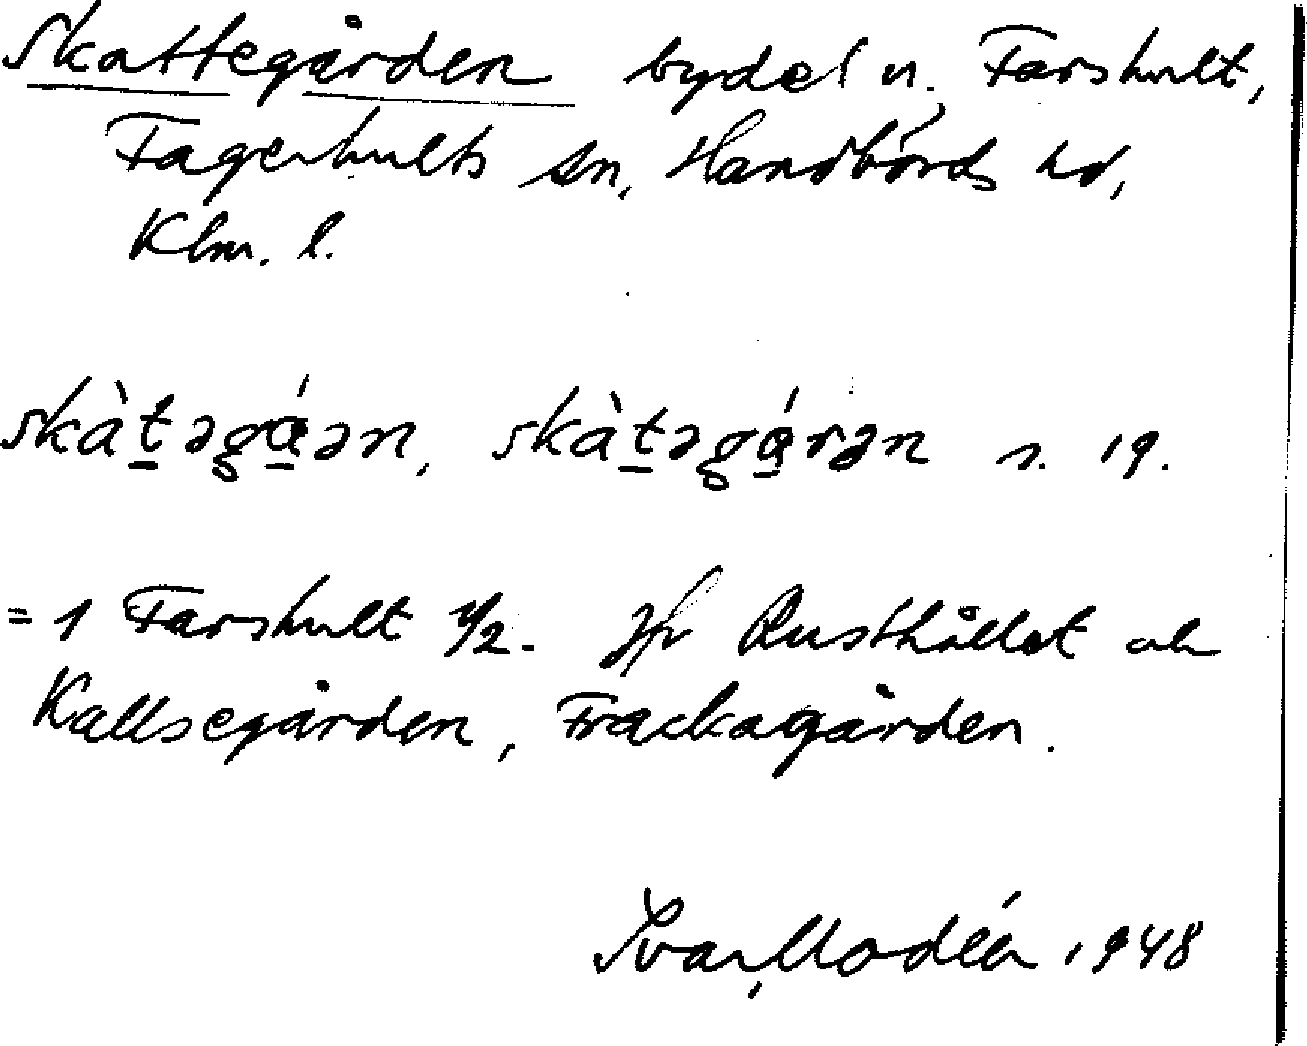 Skattegården bydel n. Farshult,
Fagerhults sn, Handbörds hd,
Klm. l.
skàt̲əgá̲ən, skàt̲əgá̲rən n. 19.
= 1 Farshult 1/2. Jfr Rusthållet och
Kallsegården, Frackagården.
Ivar Modéer 1948